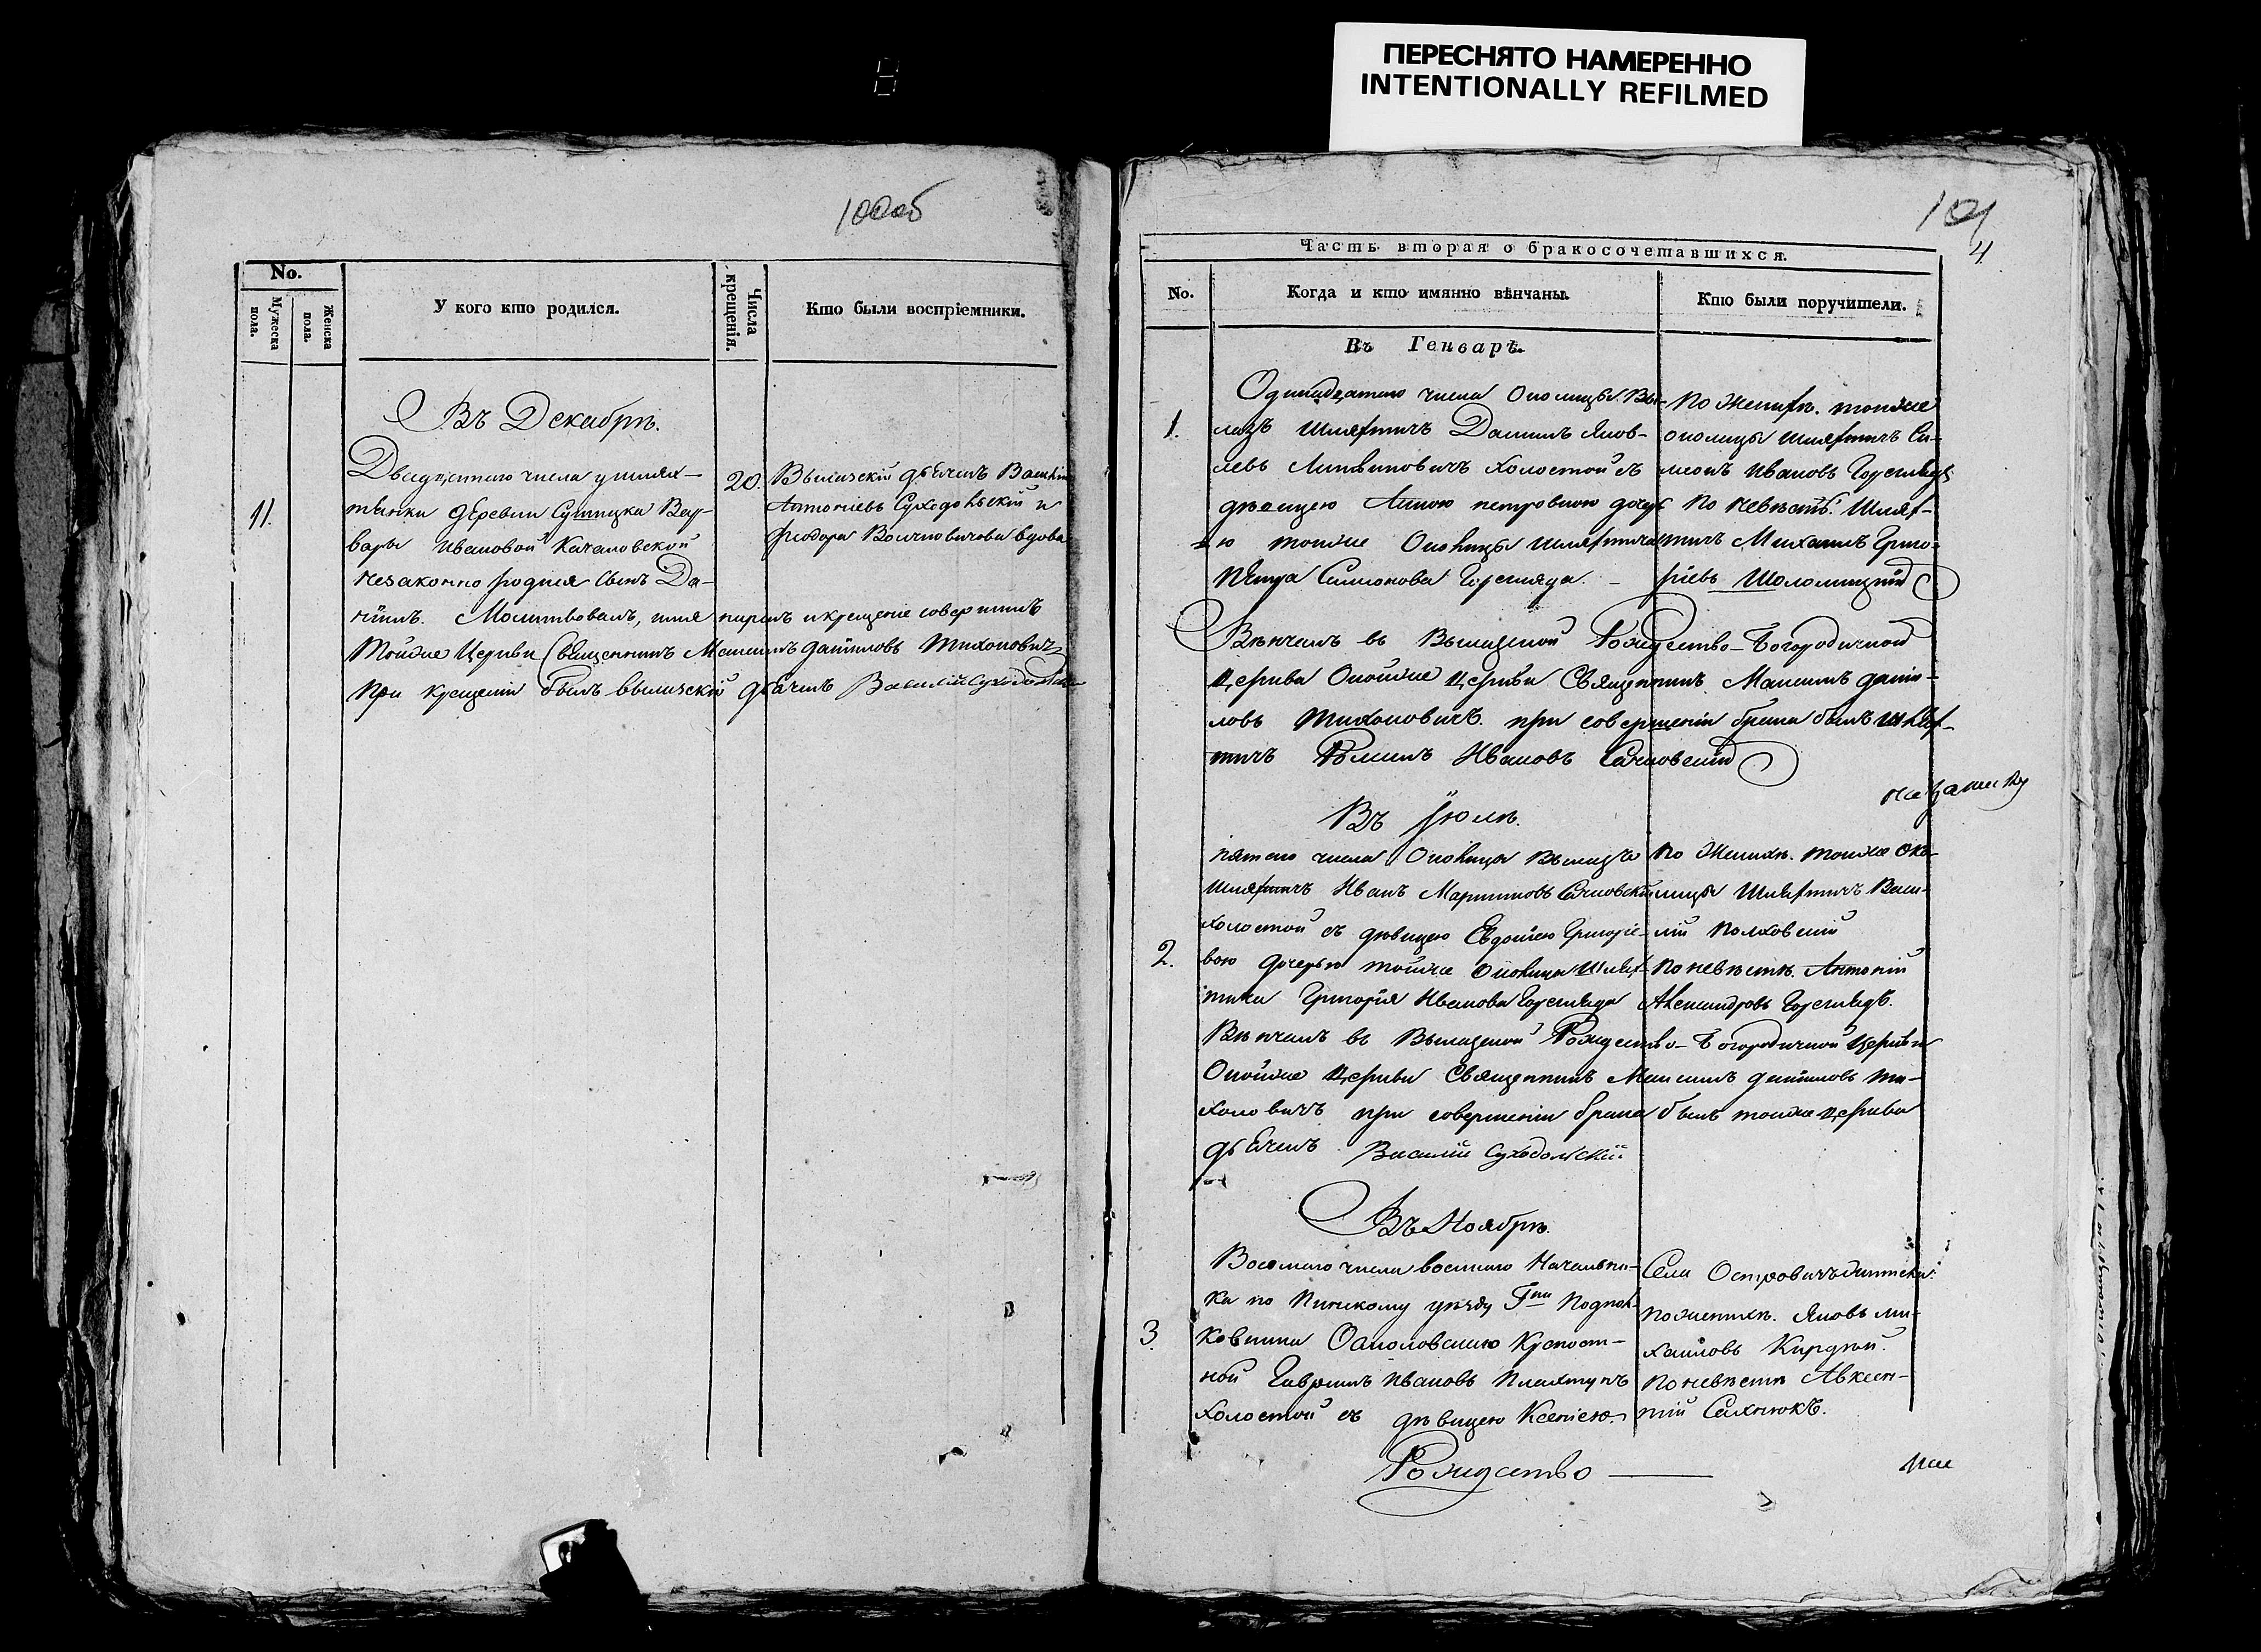 ПЕРЕСНЯТО НАМЕРЕННО
INTENTIONALLY REFILMED
100об
No.
Мужеска пола.
Женска пола.
У кого кто родился.
Числа крещенія.
Кто были воспріемники.
Въ Декабрѣ.
11.
Двадцатого числа у шлях-
тянки деревни Вар-
вары Ивановой Качановской
незаконно родися сынъ Да-
ніилъ. Молитвовалъ, имя нарекъ и крещеніе совершилъ
тойже Церкви Священникъ Максимъ Даніиловъ Тихоновичъ
При крещеніи былъ вылазскій дьячекъ Василій Суходольскій
20.
Вылазскій дьячекъ Василій
Антоніевъ Суходольскій и
Феодора вдова
101
4
Часть вторая о бракосочетавшихся.
No.
Когда и кто имянно вѣнчаны.
Кто были поручители.
Въ Генварѣ.
1.
Одинадцатого числа Околицы Вы-
лазъ шляхтичъ Даніилъ Яков-
левъ Литвиновичъ холостой съ
дѣвицею Анною Петровною дочер
ю тойже Околицы шляхтича
Петра Симонова Горегляда.
По женихѣ. тойже
околицы шляхтичъ Си-
меонъ Ивановъ Гореглядъ
По невѣстѣ. Шлях-
тичъ Михаилъ Григо-
ріевъ Шоломицкій
Вѣнчалъ въ Вылазской Рождество-Богородичной
Церкви Оной же церкви Священникъ Максимъ Даніи-
ловъ Тихоновичъ. при совершеніи брака былъ шлях-
тичъ Романъ Ивановъ Сачковскій
Въ Іюлѣ.
2.
пятого числа Околицы Вылазъ
шляхтичъ Иванъ Мартиновъ Сачковскій
холостой съ дѣвицею Евдокіею Григоріе-
вою дочерью тойже Околицы шлях-
тича Григорія Иванова Горегляда
По женихѣ. тойже око-
лицы шляхтичъ Васи-
лій Полховскій
По невѣстѣ. Антоній
Александровъ Гореглядъ.
Вѣнчалъ въ Вылазской Рождество-Богородичной Церкви
Оной же Церкви Священникъ Максимъ Даніиловъ Ти-
хоновичъ при совершеніи брака былъ тойже церкви
дьячекъ Василій Суходольскій
Въ Ноябрѣ.
3.
Восьмого числа военного Начальни-
ка по Пинскому уѣзду Гна Подпол-
ковника Крепост-
ной Гавріилъ Ивановъ
холостой съ дѣвицею Ксеніею
Села
по женихѣ. Яковъ Ми-
хаиловъ
По невѣстѣ Авксен-
тій Сахнюкъ.
Рождество